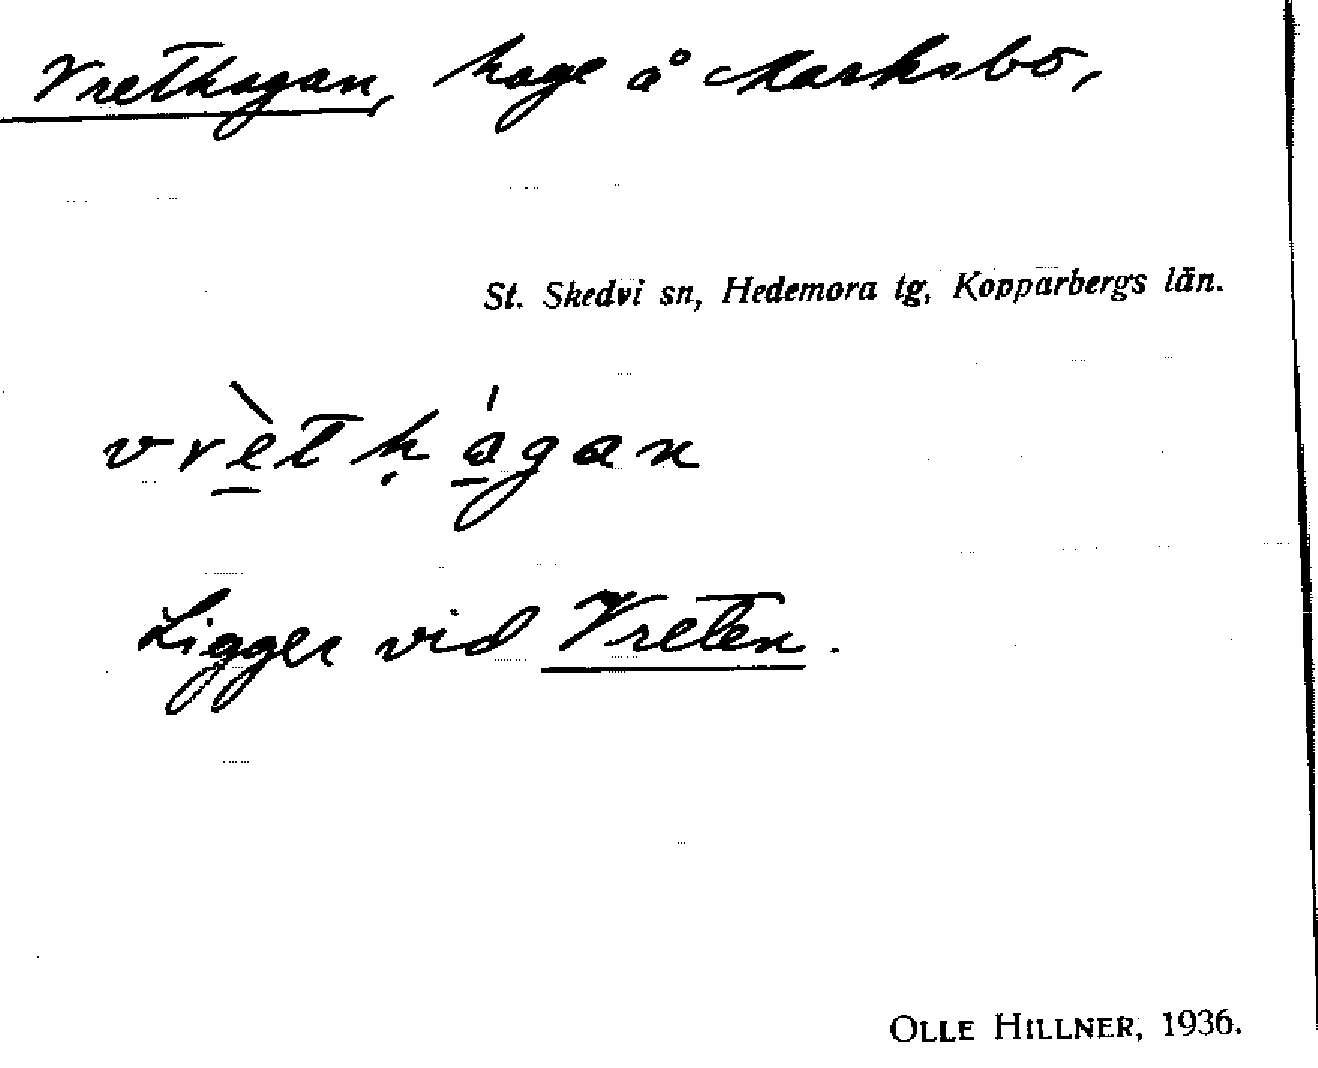 Vrethagan, hage å Marksbo,
St. Skedvi sn, Hedemora tg, Kopparbergs län.
vrè̱tḥá̱gan
Ligger vid Vreten.
OLLE HILLNER, 1936.